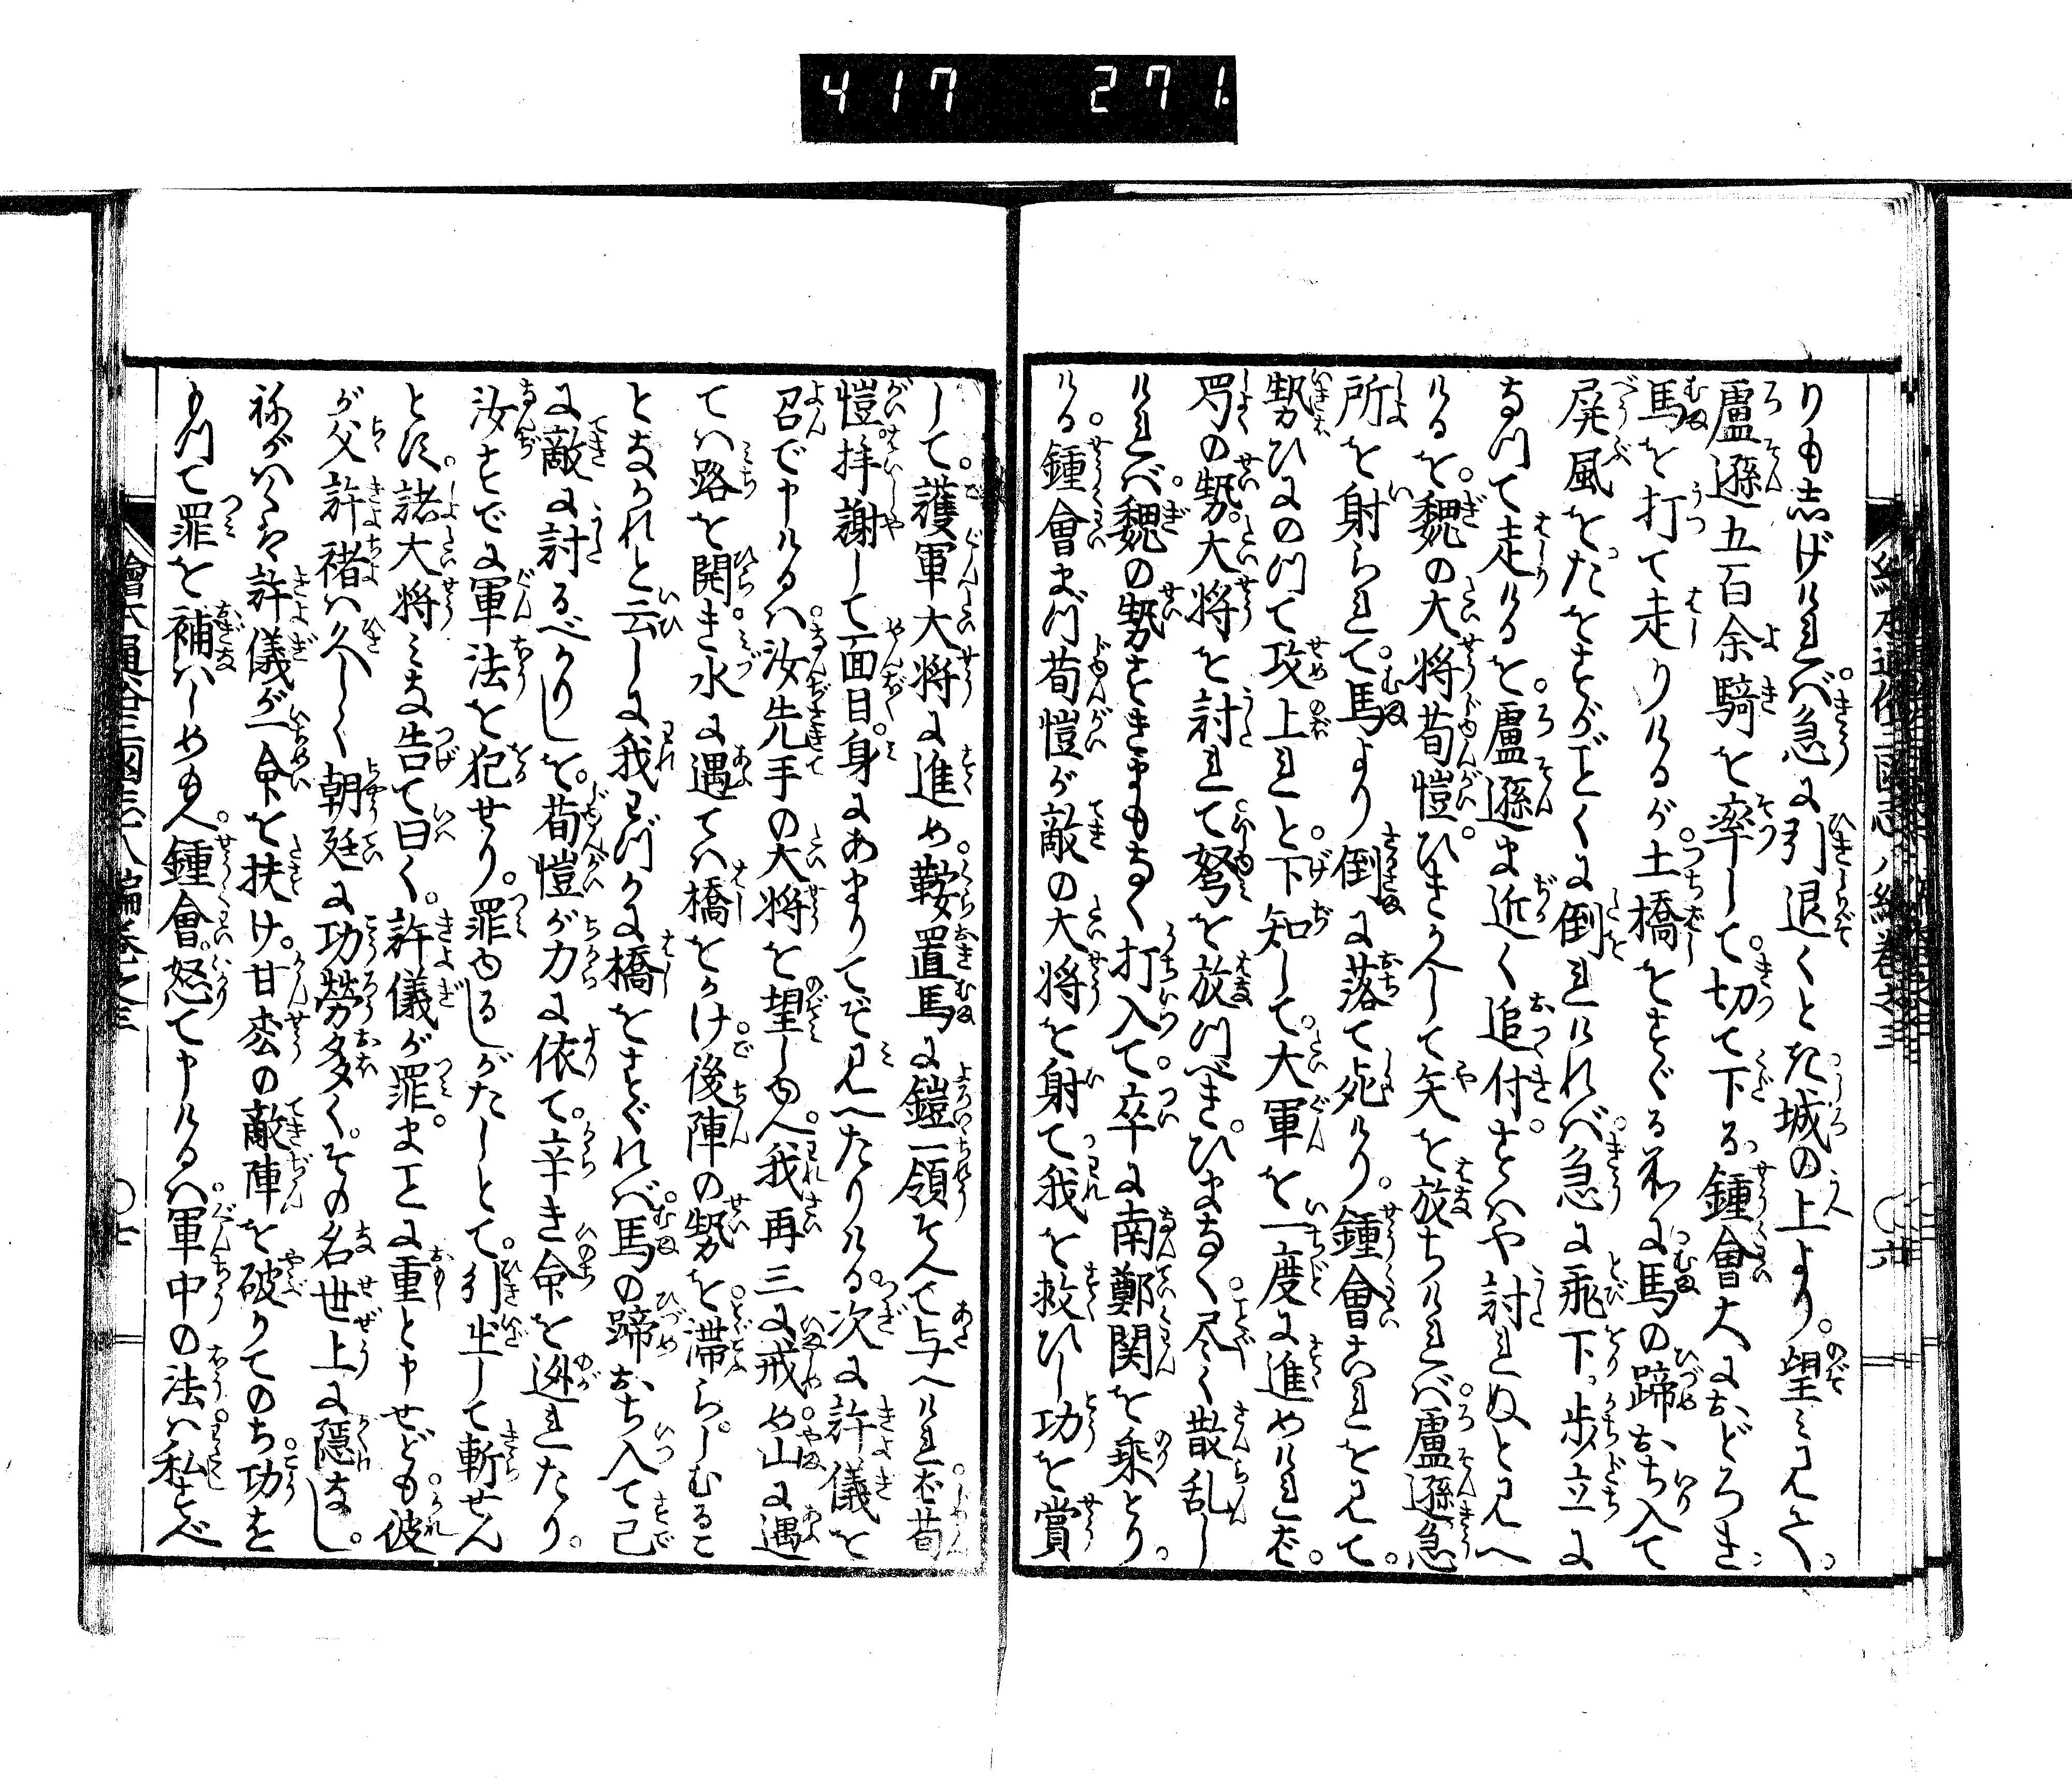 417 271
りも志げければ急に引退くとき城の上より。望ミ見て。
盧遜五百余騎を率して。切て下る。鍾會大におどろき。
馬を打て走りけるが。土橋をすぐる所に馬の蹄おち入て
屏風をたをすがごとくに倒れければ急に飛下歩立に
なつて走りけるを。盧遜ま近く追付。すハや討れぬと見へ
けるを。魏の大将荀愷。ひきかへして矢を放ちければ盧遜急
所を射られて。馬より倒に落て死けり。鍾會これを見て。
勢ひにのつて攻上れと。下知して。大軍を一度に進めければ。
蜀の勢。大将を討れて弩を放つべき。ひまなく尽く散乱し
ければ。魏の勢すきまもなく打入て。卒に南鄭関を乗とり。
ける。鍾會まづ荀愷が敵の大将を射て我を救ひし功を賞
して。護軍大将に進め。鞍置馬に鎧一領そへて与へければ荀
愷。拝謝して面目。身にあまりてぞ見へたりける。次に許儀を
召で申けるハ。汝先手の大将を望しゆへ。我再三に戒め。山に遇
てハ路を開き。水に遇てハ橋をかけ。後陣の勢を滞らしむるこ
となかれと云しに我わづかに橋をすぐれば。馬の蹄おち入て已
に敵に討るべかりしを。荀愷が力に依て。辛き命を遁れたり。
汝すでに軍法を犯せり。罪ゆるしがたしとて。引出して斬せん
とす。諸大将ミな告て曰く。許儀が罪。まことに重と申せども。彼
が父許褚ハ久しく朝廷に功勞多く。その名世上に隠なし。
祢がハくは許儀が一命を扶け。甘松の敵陣を破りてのち功を
もつて罪を補ハしめ玉へ。鍾會。怒て申けるハ。軍中の法ハ私すべ